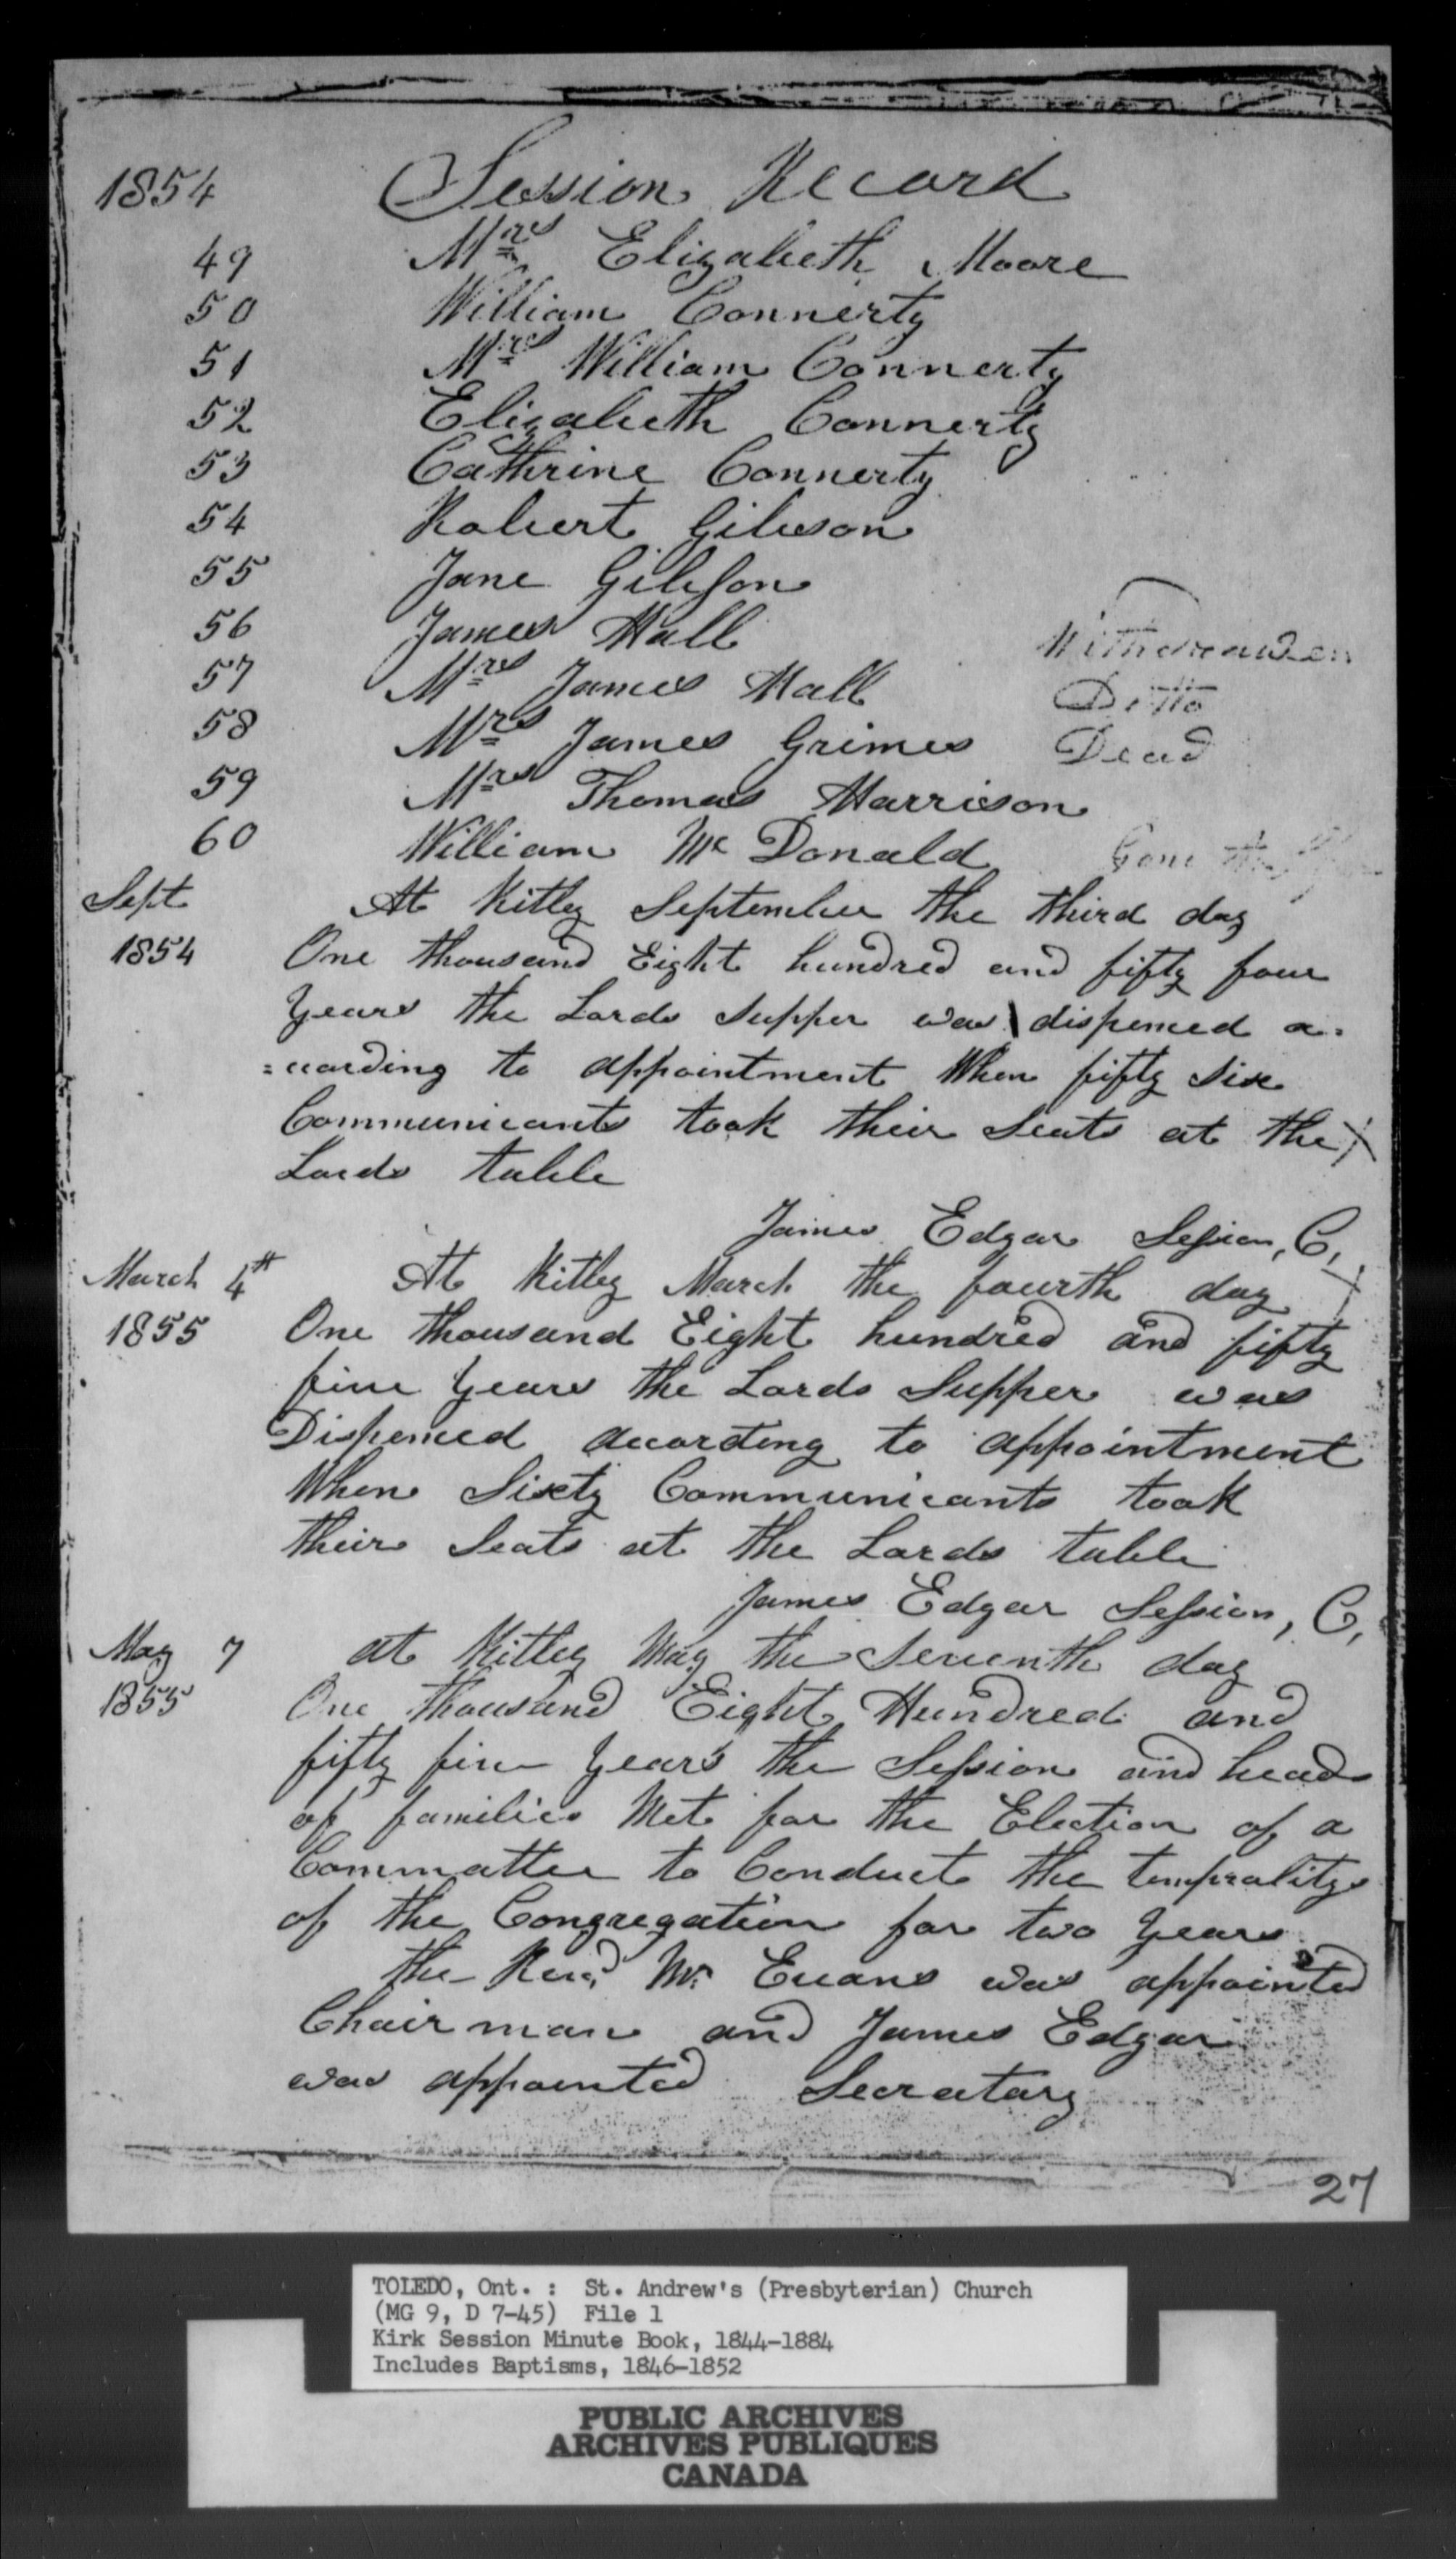 1854 Session Record
49 Mrs Elizabeth Moore
50 William Connerty
51 Mrs William Connerty
52 Elizabeth Connerty
53 Cathrine Connerty
54 Robert Gibson
55 Jane Gibson
56 James Hall Withdrawen
57 Mrs James Hall Ditto
58 Mrs James Grimes Dead
59 Mrs Thomas Harrison
60 William Mc Donald Gone
Sept At Kitley September the third day
1854 One thousand Eight hundred and fifty four
Years the Lords Supper was dispenced a=
=ccording to appointment When fifty six
Communicants took their Seats at the
Lords table
James Edgar Session, C,
March 4th At Kitley March the fourth day
1855 One thousand Eight hundred and fifty
five Years the Lords Supper was
Dispenced according to appointment
When Sixty Communicants took
their Seats at the Lords table
James Edgar Session, C,
May 7 at Kitley May the Seventh day
1855 One thousand Eight Hundred and
fifty five Years the Session and heads
of families Met for the Election of a
Committee to Conduct the temprality
of the Congregation for two Years
the Revd Mr Evans was appointed
Chairman and James Edgar
was appointed Secratary
27
TOLEDO, Ont. : St. Andrew's (Presbyterian) Church
(MG 9, D 7-45) File 1
Kirk Session Minute Book, 1844-1884
Includes Baptisms, 1846-1852
PUBLIC ARCHIVES
ARCHIVES PUBLIQUES
CANADA